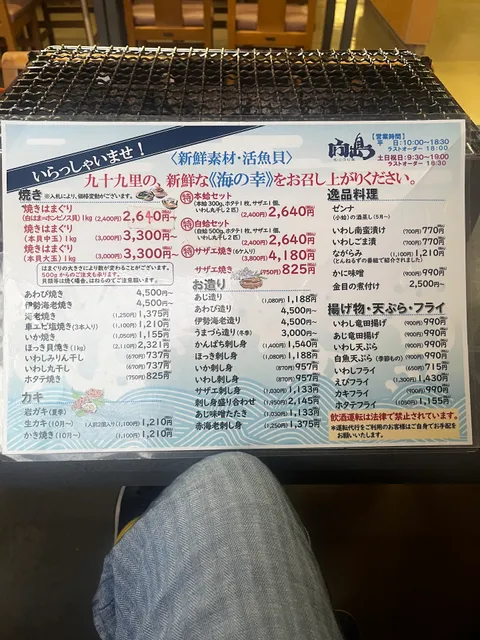 いらっしゃいませ!
〈新鮮素材・活魚貝〉
九十九里の、新鮮な《海の幸》をお召し上がりください。
【営業時間】
平 日:10:00~18:30
ラストオーダー 18:00
土日祝日:9:30~19:00
ラストオーダー 18:30
焼き ※入札により、価格変動がございます。
焼きはまぐり
(白はま=ホンビノス貝)1kg (2,400円) 2,640円~
焼きはまぐり
(本貝中玉)1kg (3,000円) 3,300円~
焼きはまぐり
(本貝大玉)1kg (3,000円) 3,300円~
はまぐりの大きさにより数が変わることがございます。
500gからのご注文も承ります。
あわび焼き 4,500円~
伊勢海老焼き 4,500円~
海老焼き (1,250円) 1,375円
車エビ塩焼き(3本入り) (1,100円) 1,210円
いか焼き (1,050円) 1,155円
ほっき貝焼き(1kg) (2,110円) 2,321円
いわしみりん干し (670円) 737円
いわし丸干し (670円) 737円
ホタテ焼き (750円) 825円
カキ
岩ガキ(夏季)
生カキ(10月~) (1人前2個入り/1,100円) 1,210円
かき焼き(10月~) (1,100円) 1,210円
特 本蛤セット
(本蛤300g,ホタテ1枚,サザエ1個,
いわし丸干し2匹) (2,400円) 2,640円
特 白蛤セット
(白蛤500g,ホタテ1枚,サザエ1個,
いわし丸干し2匹) (2,400円) 2,640円
特 サザエ焼き(6ケ入り) (3,800円) 4,180円
サザエ焼き (750円) 825円
お造り
あじ造り (1,080円) 1,188円
あわび造り 4,500円~
伊勢海老造り 4,500円~
うまづら造り(冬季) 3,000円~
かんぱち刺身 (1,400円) 1,540円
ほっき刺身 (1,080円) 1,188円
いか刺身 (870円) 957円
いわし刺身 (870円) 957円
サザエ刺身 (1,030円) 1,133円
刺し身盛り合わせ (1,950円) 2,145円
あじ味噌たたき (1,030円) 1,133円
赤海老刺し身 (1,250円) 1,375円
逸品料理
ゼンナ
(小蛤)の酒蒸し(5月~)
いわし南蛮漬け (700円) 770円
いわしごま漬け (700円) 770円
ながらみ (1,100円) 1,210円
(とんねるずの番組で紹介されました)
かに味噌 (900円) 990円
金目の煮付け 2,500円~
揚げ物・天ぷら・フライ
いわし竜田揚げ (900円) 990円
あじ竜田揚げ (900円) 990円
いわし天ぷら (900円) 990円
白魚天ぷら(季節もの) (900円) 990円
いわしフライ (650円) 715円
えびフライ (1,300円) 1,430円
カキフライ (900円) 990円
ホタテフライ (1,050円) 1,155円
飲酒運転は法律で禁止されています。
※運転代行をご利用のお客様はご自身でお手配を
お願いいたします。